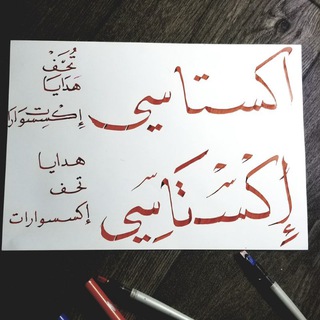 اكستاسي
تُحَفْ
هَدَايَا
إِكْسِسْوَارَات
إِكْسْتَاسِي
هدايا
تحف
إكسسوارات